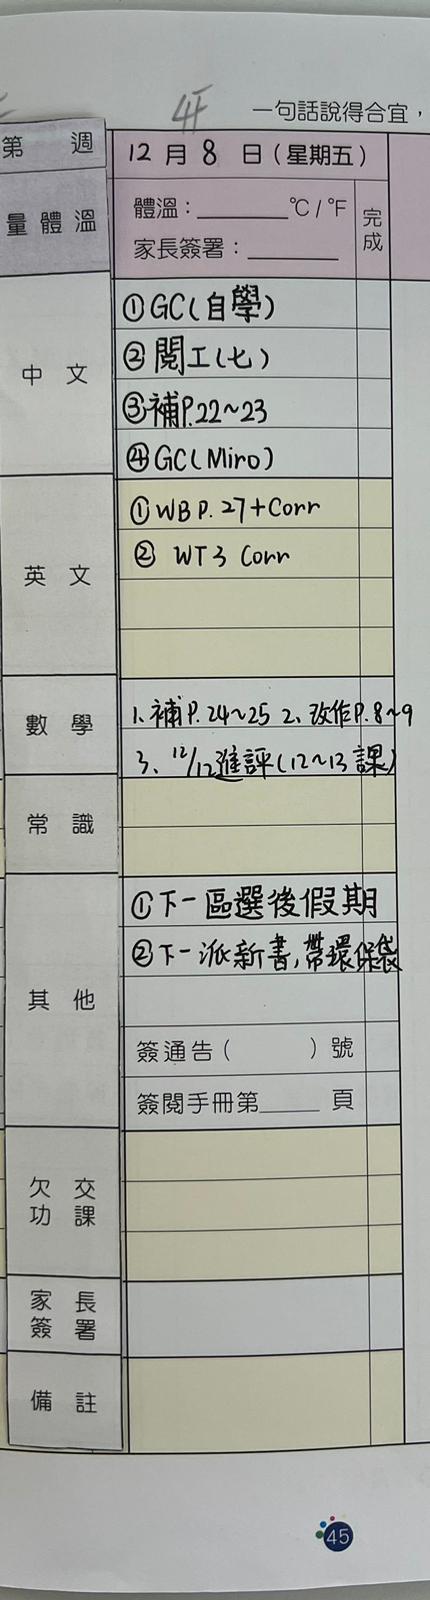 4F
一句話說得合宜，
第 週
12 月 8 日（星期五）
量體溫
體溫：________°C / °F
家長簽署：________
完成
中文
①GC(自學)
②閱工(七)
③補P.22~23
④GC(Miro)
英文
①WB P.27+Corr
② WT3 Corr
數學
1、補P.24~25 2、改作P.8~9
3、12/12進評(12~13課)
常識
其他
①下一區選後假期
②下一派新書,帶環保袋
簽通告（ ）號
簽閱手冊第____頁
欠交功課
家長簽署
備註
45